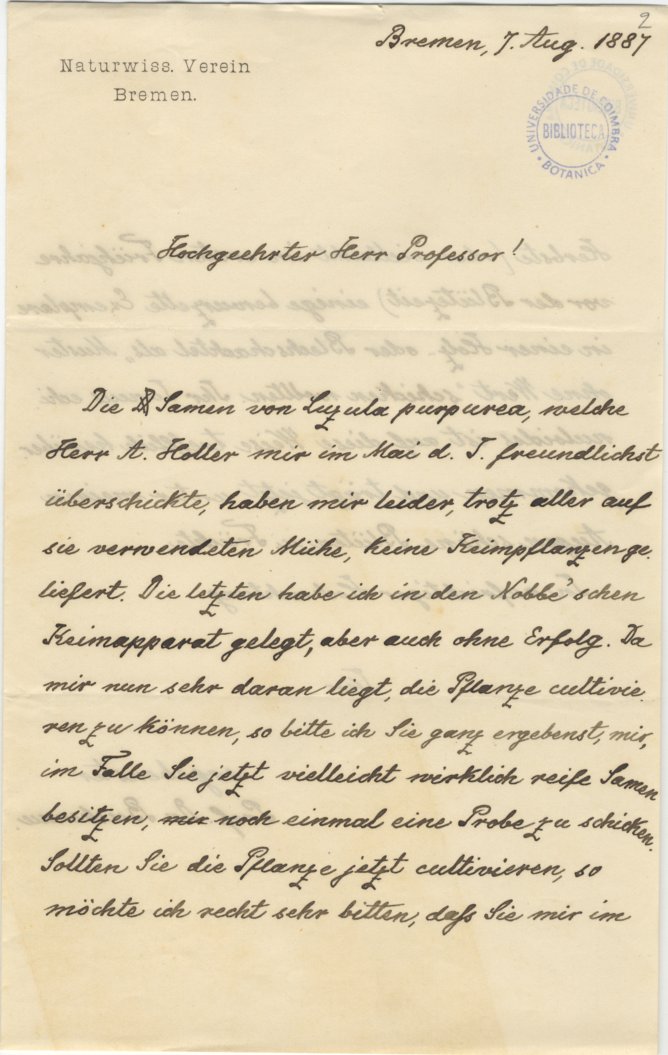 2
Bremen, 7. Aug. 1887
Naturwiss. Verein
Bremen.
UNIVERSIDADE DE COIMBRA
BIBLIOTECA
BOTANICA
Hochgeehrter Herr Professor!
Die Samen von Luzula purpurea, welche
Herr A. Holler mir im Mai d. J. freundlichst
überschickte, haben mir leider, trotz aller auf
sie verwendeten Mühe, keine Keimpflanzen ge-
liefert. Die letzten habe ich in den Nobbe'schen
Keimapparat gelegt, aber auch ohne Erfolg. Da
mir nun sehr daran liegt, die Pflanze cultivie-
ren zu können, so bitte ich Sie ganz ergebenst, mir,
im Falle Sie jetzt vielleicht wirklich reife Samen
besitzen, mir noch einmal eine Probe zu schicken.
Sollten Sie die Pflanze jetzt cultivieren, so
möchte ich recht sehr bitten, daſs Sie mir im